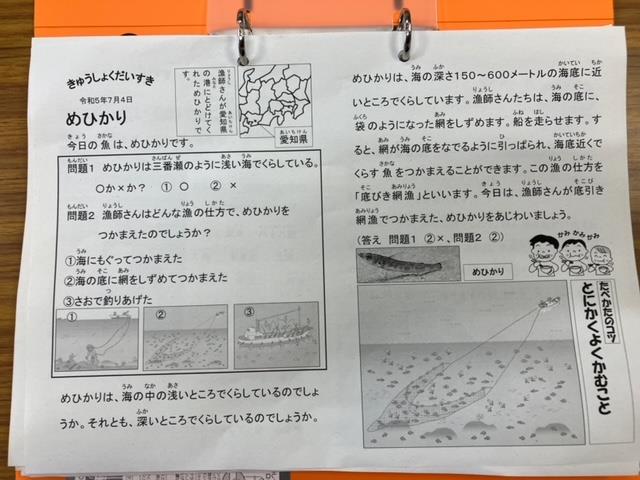 きゅうしょくだいすき
令和5年7月4日
めひかり
今日の魚は、めひかりです。
漁師さんが愛知県
の港にとどけてく
れためひかりで
す。
愛知県
問題1 めひかりは三番瀬のように浅い海でくらしている。
○か×か? ① ○ ② ×
問題2 漁師さんはどんな漁の仕方で、めひかりを
つかまえたのでしょうか?
①海にもぐってつかまえた
②海の底に網をしずめてつかまえた
③さおで釣りあげた
①
②
③
めひかりは、海の中の浅いところでくらしているのでしょ
うか。それとも、深いところでくらしているのでしょうか。
めひかりは、海の深さ150～600メートルの海底に近
いところでくらしています。漁師さんたちは、海の底に、
袋のようになった網をしずめます。船を走らせます。す
ると、網が海の底をなでるように引っぱられ、海底近くで
くらす魚をつかまえることができます。この漁の仕方を
「底びき網漁」といいます。今日は、漁師さんが底引き
網漁でつかまえた、めひかりをあじわいましょう。
(答え 問題1 ②×、問題2 ②)
かみかみかみ
めひかり
たべかたのコツ
とにかくよくかむこと